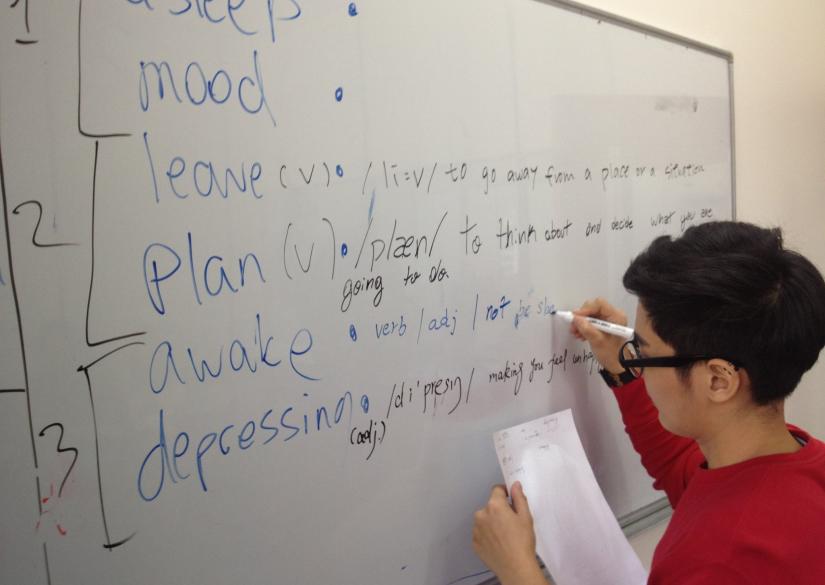 1
asleep •
mood •
2
leave (v) • /li:v/ to go away from a place or a situation
plan (v) • /plæn/ to think about and decide what you are
going to do.
3
awake • verb / adj / not be slee
depressing • /di'presiŋ/ making you feel unha
(adj.)